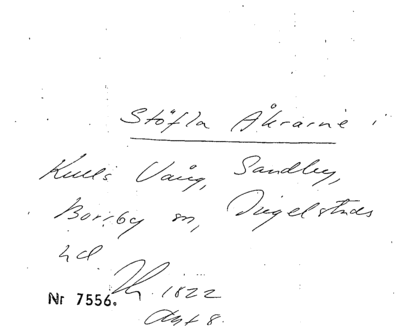 Stöfla Åkrarne i
Kulls Vång, Sandby,
Borrby sn, Ingelstads
hd
1822
Nr 7556.
Akt 8.